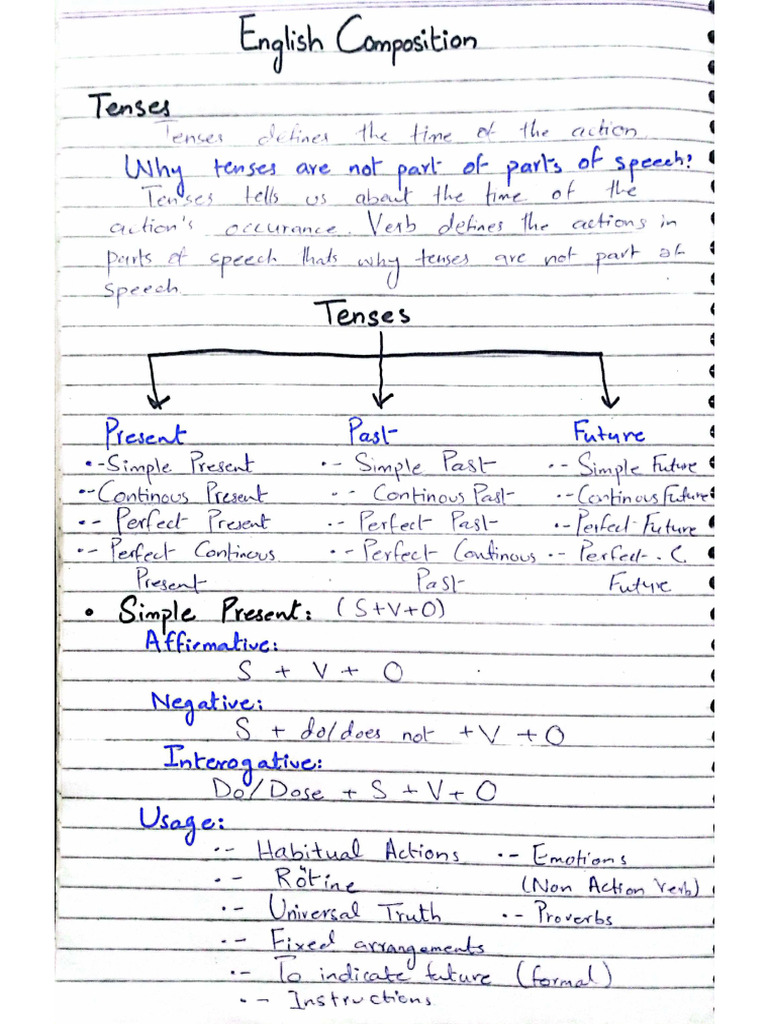 English Composition
Tenses
Tenses defines the time of the action
Why tenses are not part of parts of speech?
Tenses tells us about the time of the
action's occurance. Verb defines the actions in
parts of speech thats why tenses are not part of
speech.
Tenses
Present Past Future
•-Simple Present •- Simple Past •- Simple Future
•-Continous Present -- Continous Past •-Continous Future
•- Perfect Present •- Perfect Past •-Perfect Future
•- Perfect Continous •- Perfect Continous •- Perfect. C.
Present Past Future
• Simple Present: (S+V+O)
Affirmative:
S + V + O
Negative:
S + do/does not +V +O
Interogative:
Do/Dose + S + V + O
Usage:
•- Habitual Actions •- Emotions
•- Rotine (Non Action Verb)
•- Universal Truth •- Proverbs
•- Fixed arrangements
•- To indicate future (formal)
•- Instructions